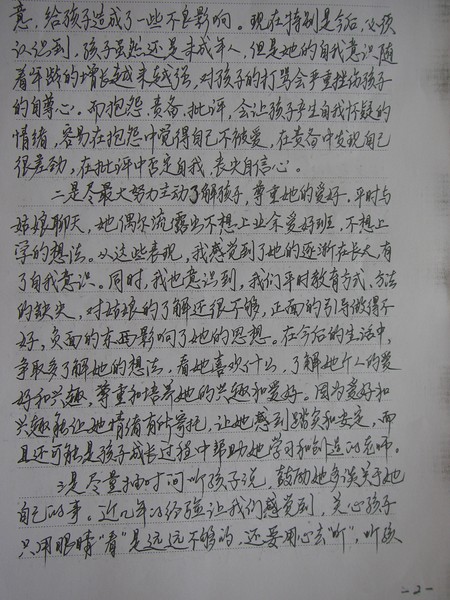 意,给孩子造成了一些不良影响。现在特别是今后,必须
认识到,孩子虽然还是未成年人,但是她的自我意识随
着年龄的增长越来越强,对孩子的打骂会严重挫伤孩子
的自尊心。而抱怨、责备、批评,会让孩子产生自我怀疑的
情绪,容易在抱怨中觉得自己不被爱,在责备中发现自己
很差劲,在批评中否定自我、丧失自信心。
二是尽最大努力主动了解孩子,尊重她的爱好。平时与
姑娘聊天,她偶尔流露出不想上业余爱好班,不想上
学的想法。从这些表现,我感觉到了她的逐渐在长大,有
了自我意识。同时,我也意识到,我们平时教育方式、方法
的缺失,对姑娘的了解还很不够,正面的引导做得不
好,负面的东西影响了她的思想。在今后的生活中,
争取多了解她的想法,看她喜欢什么,了解她个人的爱
好和兴趣,尊重和培养她的兴趣和爱好。因为爱好和
兴趣能让她情绪有所寄托,让她感到踏实和安定,而
且还可能是孩子成长过程中帮助她学习和创造的老师。
三是尽量抽时间听孩子说,鼓励她多谈关于她
自己的事。近几年的经验让我们感觉到,关心孩子
只用眼睛“看”是远远不够的,还要用心去“听”,听孩
-2-